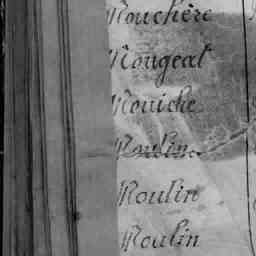 Mouchère
Mougeat
Mouiche
Moulin
Moulin
Moulin